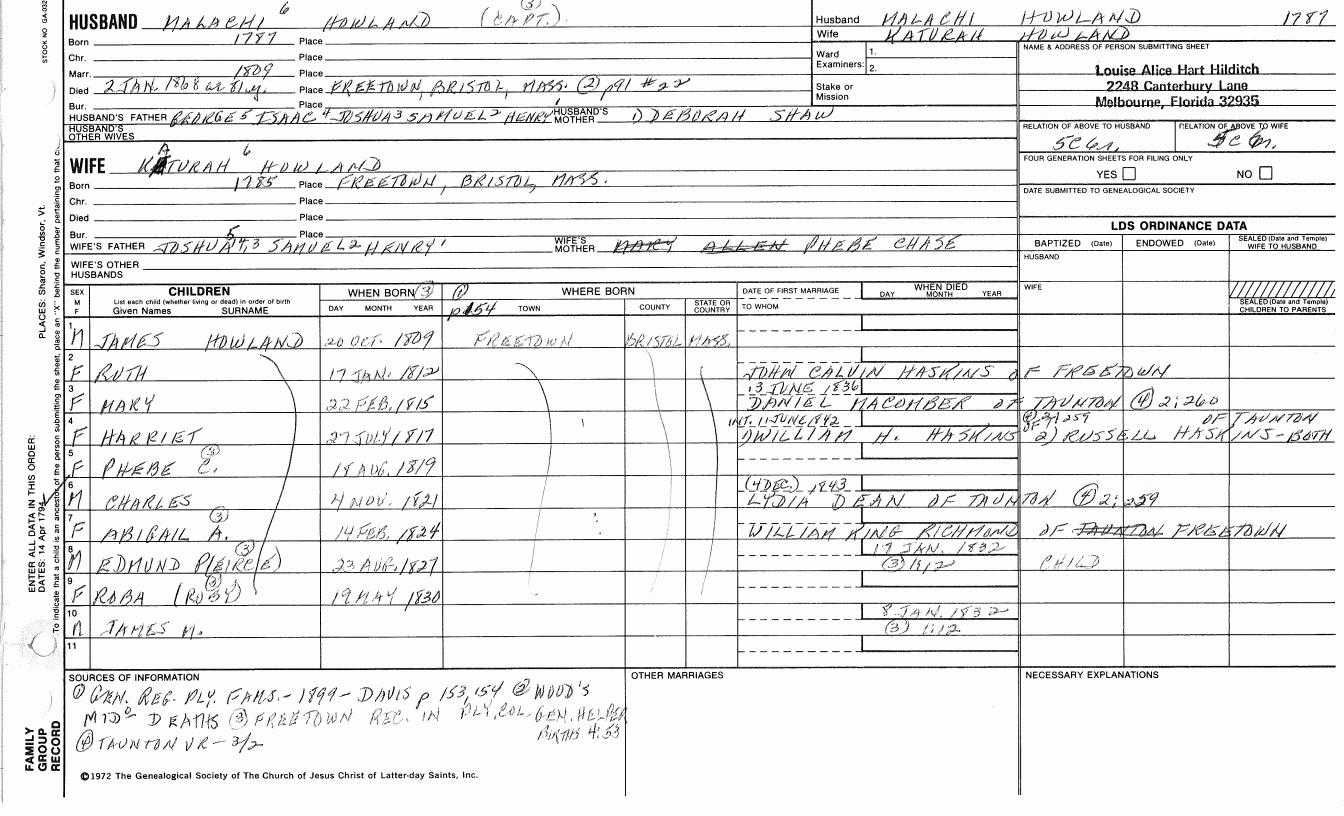 STOCK NO GA-032
HUSBAND MALACHI 6 HOWLAND (CAPT.) (3)
Husband MALACHI HOWLAND 1787
Born 1787 Place
Wife KATURAH HOWLAND
Chr. Place
Ward Examiners: 1. 2.
NAME & ADDRESS OF PERSON SUBMITTING SHEET
Louise Alice Hart Hilditch
2248 Canterbury Lane
Melbourne, Florida 32935
Marr. 1809 Place
Died 2 JAN. 1868 Place FREETOWN, BRISTOL, MASS. (2) p91 #22
Stake or Mission
Bur. Place
HUSBAND'S FATHER GEORGE 5 ISAAC 4 JOSHUA 3 SAMUEL 2 HENRY 1 HUSBAND'S MOTHER DEBORAH SHAW
HUSBAND'S OTHER WIVES
RELATION OF ABOVE TO HUSBAND RELATION OF ABOVE TO WIFE
WIFE KATURAH 6 HOWLAND
FOUR GENERATION SHEETS FOR FILING ONLY
YES NO
Born 1785 Place FREETOWN, BRISTOL, MASS.
Chr. Place
DATE SUBMITTED TO GENEALOGICAL SOCIETY
Died Place
Bur. Place
LDS ORDINANCE DATA
WIFE'S FATHER JOSHUA 5, 4, 3 SAMUEL 2 HENRY 1 WIFE'S MOTHER MARY ALLEN PHEBE CHASE
BAPTIZED (Date) ENDOWED (Date) SEALED (Date and Temple) WIFE TO HUSBAND
WIFE'S OTHER HUSBANDS
HUSBAND
SEX M F
CHILDREN
List each child (whether living or dead) in order of birth
Given Names SURNAME
WHEN BORN (3)
DAY MONTH YEAR
(1) p154
WHERE BORN
TOWN COUNTY STATE OR COUNTRY
DATE OF FIRST MARRIAGE
TO WHOM
WHEN DIED
DAY MONTH YEAR
WIFE
SEALED (Date and Temple) CHILDREN TO PARENTS
1 M JAMES HOWLAND 20 OCT. 1809 FREETOWN BRISTOL MASS.
2 F RUTH 17 JAN. 1812 JOHN CALVIN HASKINS OF FREETOWN
3 F MARY 22 FEB. 1815 13 JUNE 1836 DANIEL MACOMBER OF TAUNTON (4) 2:260
4 F HARRIET 27 JULY 1817 INT. 11 JUNE 1842 (4) 2:259 OF TAUNTON
1) WILLIAM H. HASKINS 2) RUSSELL HASKINS - BOTH
5 F PHEBE C. (3) 18 AUG. 1819
6 M CHARLES 4 NOV. 1821 (4 DEC.) 1843 LYDIA DEAN OF TAUNTON (4) 2:259
7 F ABIGAIL A. (3) 14 FEB. 1824 WILLIAM KING RICHMOND OF TAUNTON FREETOWN
8 M EDMUND P(EIRCE) (3) 23 AUG. 1827 17 JAN. 1832 (3) 1:12 CHILD
9 F ROBA (RUBY) (3) 19 MAY 1830
10 M JAMES M. 8 JAN. 1832 (3) 1:12
11
SOURCES OF INFORMATION
(1) GEN. REG. PLY. FAMS. - 1899 - DAVIS p 153, 154 (2) WOOD'S
MIDO DEATHS (3) FREETOWN REC. IN PLY. COL. GEN. HELPER
BIRTHS 4:53
(4) TAUNTON VR - 3/2
OTHER MARRIAGES
NECESSARY EXPLANATIONS
©1972 The Genealogical Society of The Church of Jesus Christ of Latter-day Saints, Inc.
FAMILY GROUP RECORD
ENTER ALL DATA IN THIS ORDER:
DATES: 14 Apr 1794
PLACES: Sharon, Windsor, Vt.
To indicate that a child is an ancestor of the person submitting the sheet, place an "X" behind the number pertaining to that c